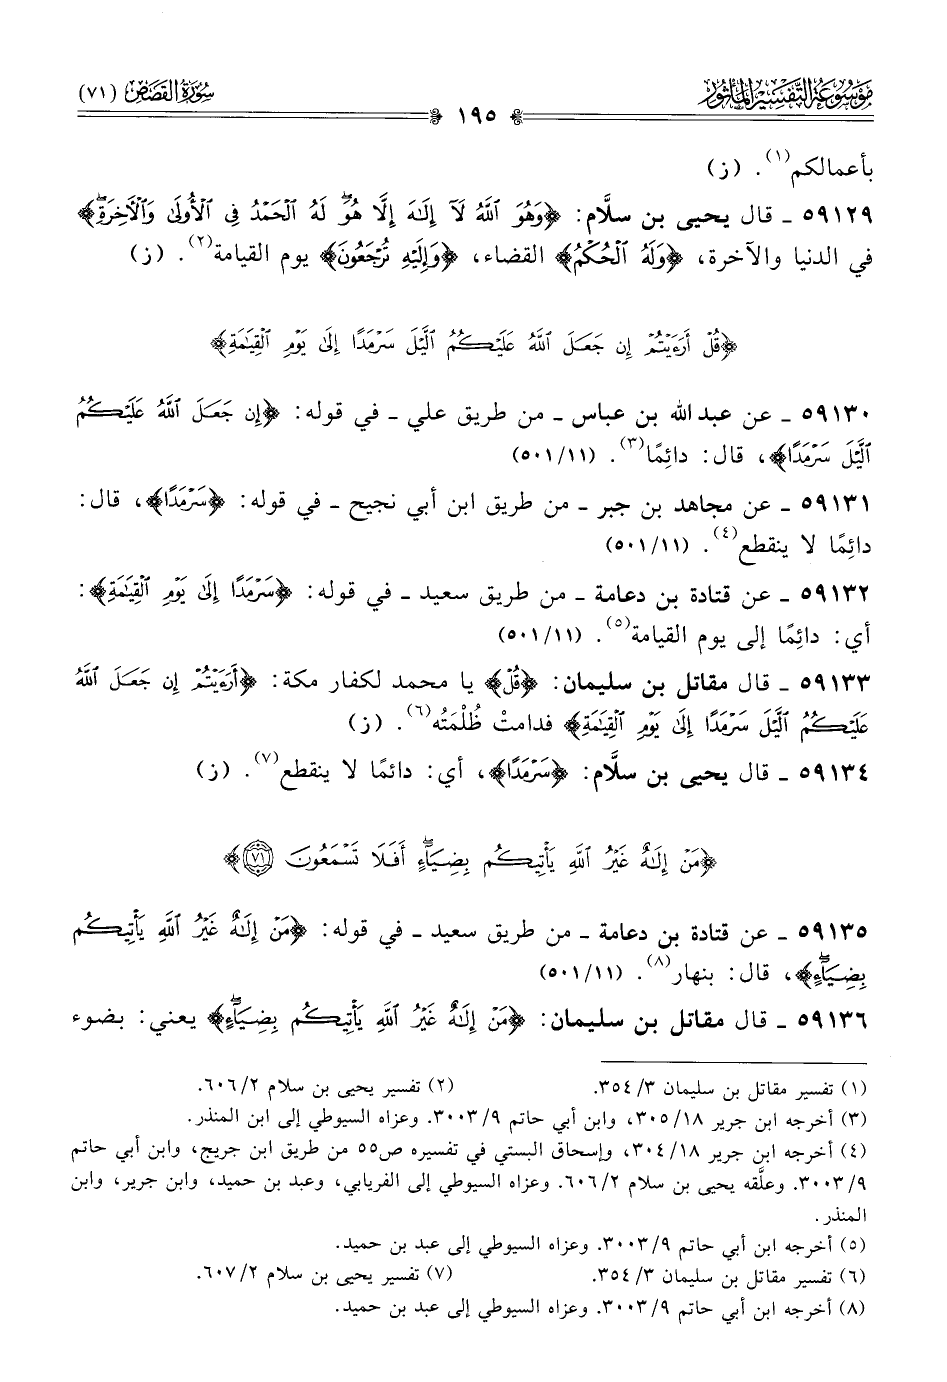 مَوْسُوعَة التَّفْسِير المَأْثُور
سُورَةُ القَصَص (٧١)
١٩٥
بأعمالكم(١). (ز)
٥٩١٢٩ ـ قال يحيى بن سلَّام: ﴿وَهُوَ ٱللَّهُ لَآ إِلَٰهَ إِلَّا هُوَۖ لَهُ ٱلْحَمْدُ فِى ٱلْأُولَىٰ وَٱلْأَخِرَةِۖ﴾
في الدنيا والآخرة، ﴿وَلَهُ ٱلْحُكْمُ﴾ القضاء، ﴿وَإِلَيْهِ تُرْجَعُونَ﴾ يوم القيامة(٢). (ز)
﴿قُلْ أَرَءَيْتُمْ إِن جَعَلَ ٱللَّهُ عَلَيْكُمُ ٱلَّيْلَ سَرْمَدًا إِلَىٰ يَوْمِ ٱلْقِيَٰمَةِ﴾
٥٩١٣٠ ـ عن عبد الله بن عباس ـ من طريق علي ـ في قوله: ﴿إِن جَعَلَ ٱللَّهُ عَلَيْكُمُ
ٱلَّيْلَ سَرْمَدًا﴾، قال: دائِمًا(٣). (٥٠١/١١)
٥٩١٣١ ـ عن مجاهد بن جبر ـ من طريق ابن أبي نجيح ـ في قوله: ﴿سَرْمَدًا﴾، قال:
دائِمًا لا ينقطع(٤). (٥٠١/١١)
٥٩١٣٢ ـ عن قتادة بن دعامة ـ من طريق سعيد ـ في قوله: ﴿سَرْمَدًا إِلَىٰ يَوْمِ ٱلْقِيَٰمَةِ﴾:
أي: دائِمًا إلى يوم القيامة(٥). (٥٠١/١١)
٥٩١٣٣ ـ قال مقاتل بن سليمان: ﴿قُلْ﴾ يا محمد لكفار مكة: ﴿أَرَءَيْتُمْ إِن جَعَلَ ٱللَّهُ
عَلَيْكُمُ ٱلَّيْلَ سَرْمَدًا إِلَىٰ يَوْمِ ٱلْقِيَٰمَةِ﴾ فدامتْ ظُلْمَتُه(٦). (ز)
٥٩١٣٤ ـ قال يحيى بن سلَّام: ﴿سَرْمَدًا﴾، أي: دائمًا لا ينقطع(٧). (ز)
﴿مَنْ إِلَٰهٌ غَيْرُ ٱللَّهِ يَأْتِيكُم بِضِيَآءٍۖ أَفَلَا تَسْمَعُونَ ٧١﴾
٥٩١٣٥ ـ عن قتادة بن دعامة ـ من طريق سعيد ـ في قوله: ﴿مَنْ إِلَٰهٌ غَيْرُ ٱللَّهِ يَأْتِيكُم
بِضِيَآءٍۖ﴾، قال: بنهار(٨). (٥٠١/١١)
٥٩١٣٦ ـ قال مقاتل بن سليمان: ﴿مَنْ إِلَٰهٌ غَيْرُ ٱللَّهِ يَأْتِيكُم بِضِيَآءٍۖ﴾ يعني: بضوء
(١) تفسير مقاتل بن سليمان ٣/ ٣٥٤. (٢) تفسير يحيى بن سلام ٢/ ٦٠٦.
(٣) أخرجه ابن جرير ١٨/ ٣٠٥، وابن أبي حاتم ٩/ ٣٠٠٣. وعزاه السيوطي إلى ابن المنذر.
(٤) أخرجه ابن جرير ١٨/ ٣٠٤، وإسحاق البستي في تفسيره ص٥٥ من طريق ابن جريج، وابن أبي حاتم
٩/ ٣٠٠٣. وعلَّقه يحيى بن سلام ٢/ ٦٠٦. وعزاه السيوطي إلى الفريابي، وعبد بن حميد، وابن جرير، وابن
المنذر.
(٥) أخرجه ابن أبي حاتم ٩/ ٣٠٠٣. وعزاه السيوطي إلى عبد بن حميد.
(٦) تفسير مقاتل بن سليمان ٣/ ٣٥٤. (٧) تفسير يحيى بن سلام ٢/ ٦٠٧.
(٨) أخرجه ابن أبي حاتم ٩/ ٣٠٠٣. وعزاه السيوطي إلى عبد بن حميد.